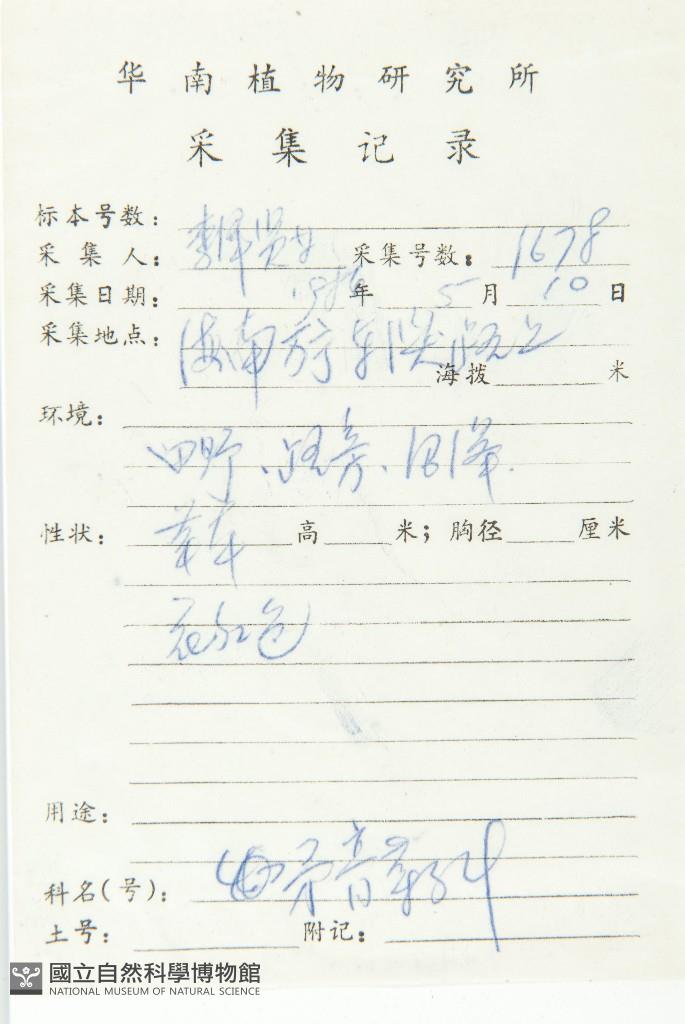 华南植物研究所
采集记录
标本号数：
采集人：李泽贤 采集号数：1678
采集日期： 年 5 月 10 日
采集地点：海南
海拨 米
环境：
田野、路旁、
性状：草本 高 米；胸径 厘米
花红色
用途：
科名(号)： 科
土号： 附记：
國立自然科學博物館
NATIONAL MUSEUM OF NATURAL SCIENCE